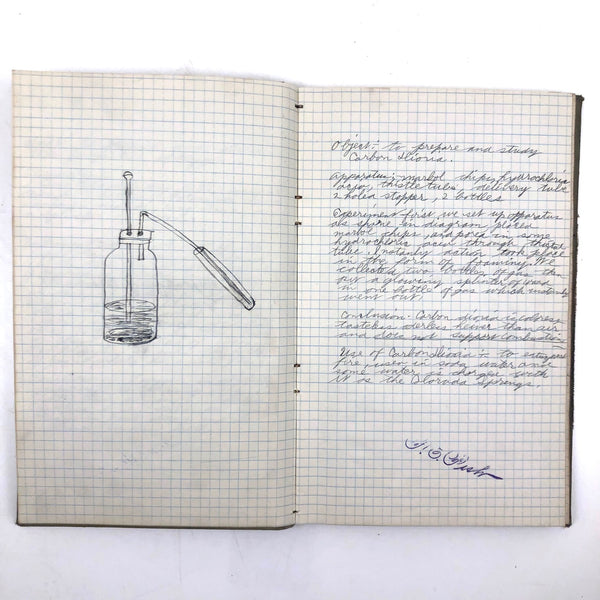 Object:- to prepare and study
Carbon dioxia.
apparatus:- marbol chips, hydrochloria
thistle tube, delivery tube
2 holed stopper, 2 bottles
Experiment first, we set up apparatus
as shine in diagram placed
marbol chips, and pored in some
hydrochloric through thistel
tube. Instantly action took place
in the form of foaming. We
collected two bottles of gas then
put a glowing splinter of wood
in one bottle of gas which instantly
went out.
Conclusion:- Carbon dioxia is
tasteless oderless hevier than air
and does not support combustion
Use of Carbon dioxia :- to
fire, used in soda water and
some water is charged with
it as the Springs.